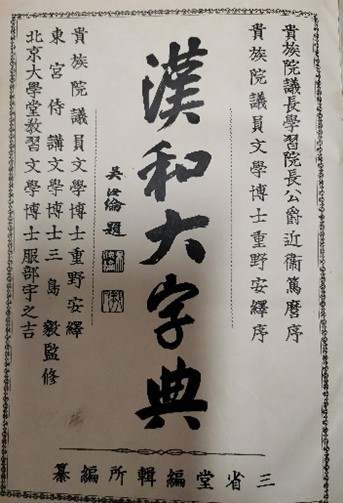 貴族院議長學習院長公爵近衞篤麿序
貴族院議員文學博士重野安繹序
漢和大字典
吳汝倫題
貴族院議員文學博士重野安繹
東宮侍講文學博士三島毅監修
北京大學堂教習文學博士服部宇之吉
三省堂編輯所編纂